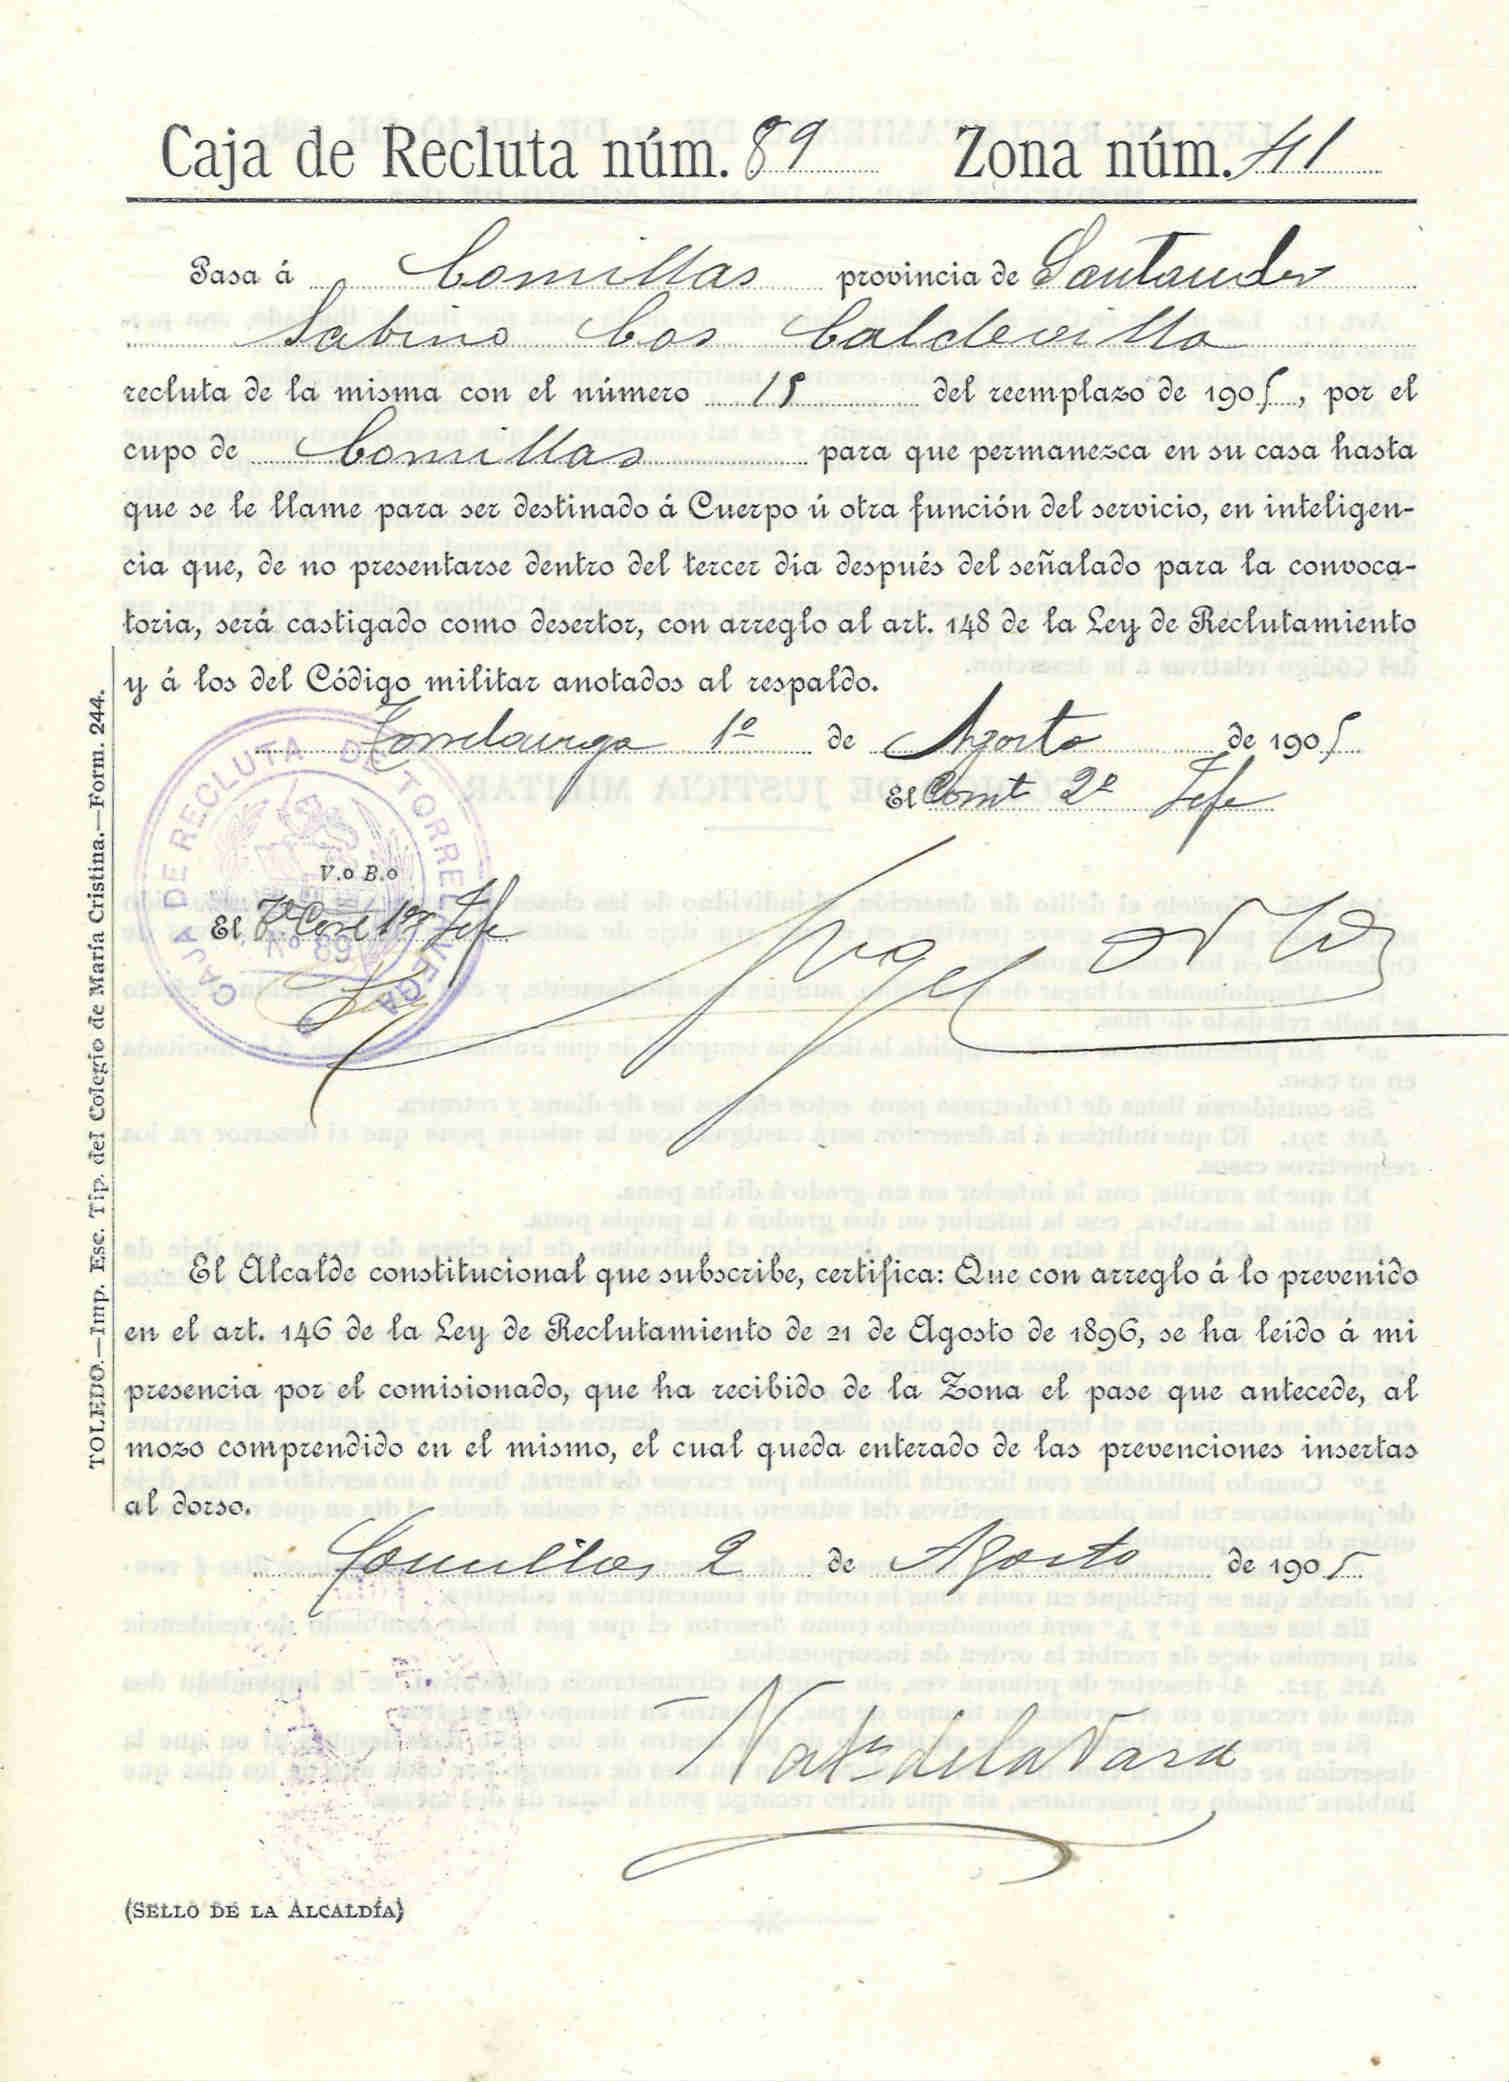 Caja de Recluta núm. 89 Zona núm. 41
Pasa á Comillas provincia de Santander
Sabino Cos Caldevilla
recluta de la misma con el número 15 del reemplazo de 1905, por el
cupo de Comillas para que permanezca en su casa hasta
que se le llame para ser destinado á Cuerpo ú otra función del servicio, en inteligen-
cia que, de no presentarse dentro del tercer día después del señalado para la convoca-
toria, será castigado como desertor, con arreglo al art. 148 de la Ley de Reclutamiento
y á los del Código militar anotados al respaldo.
Torrelavega 1º de Agosto de 1905
El Comte 2º Jefe
CAJA DE RECLUTA DE TORRELAVEGA
Nº 89
V.o B.o
El Tte Corel 1er Jefe
Angel
El Alcalde constitucional que subscribe, certifica: Que con arreglo á lo prevenido
en el art. 146 de la Ley de Reclutamiento de 21 de Agosto de 1896, se ha leído á mi
presencia por el comisionado, que ha recibido de la Zona el pase que antecede, al
mozo comprendido en el mismo, el cual queda enterado de las prevenciones insertas
al dorso.
Comillas 2 de Agosto de 1905
de la Vara
(SELLO DE LA ALCALDÍA)
TOLEDO.—Imp. Esc. Tip. del Colegio de María Cristina.—Form. 244.